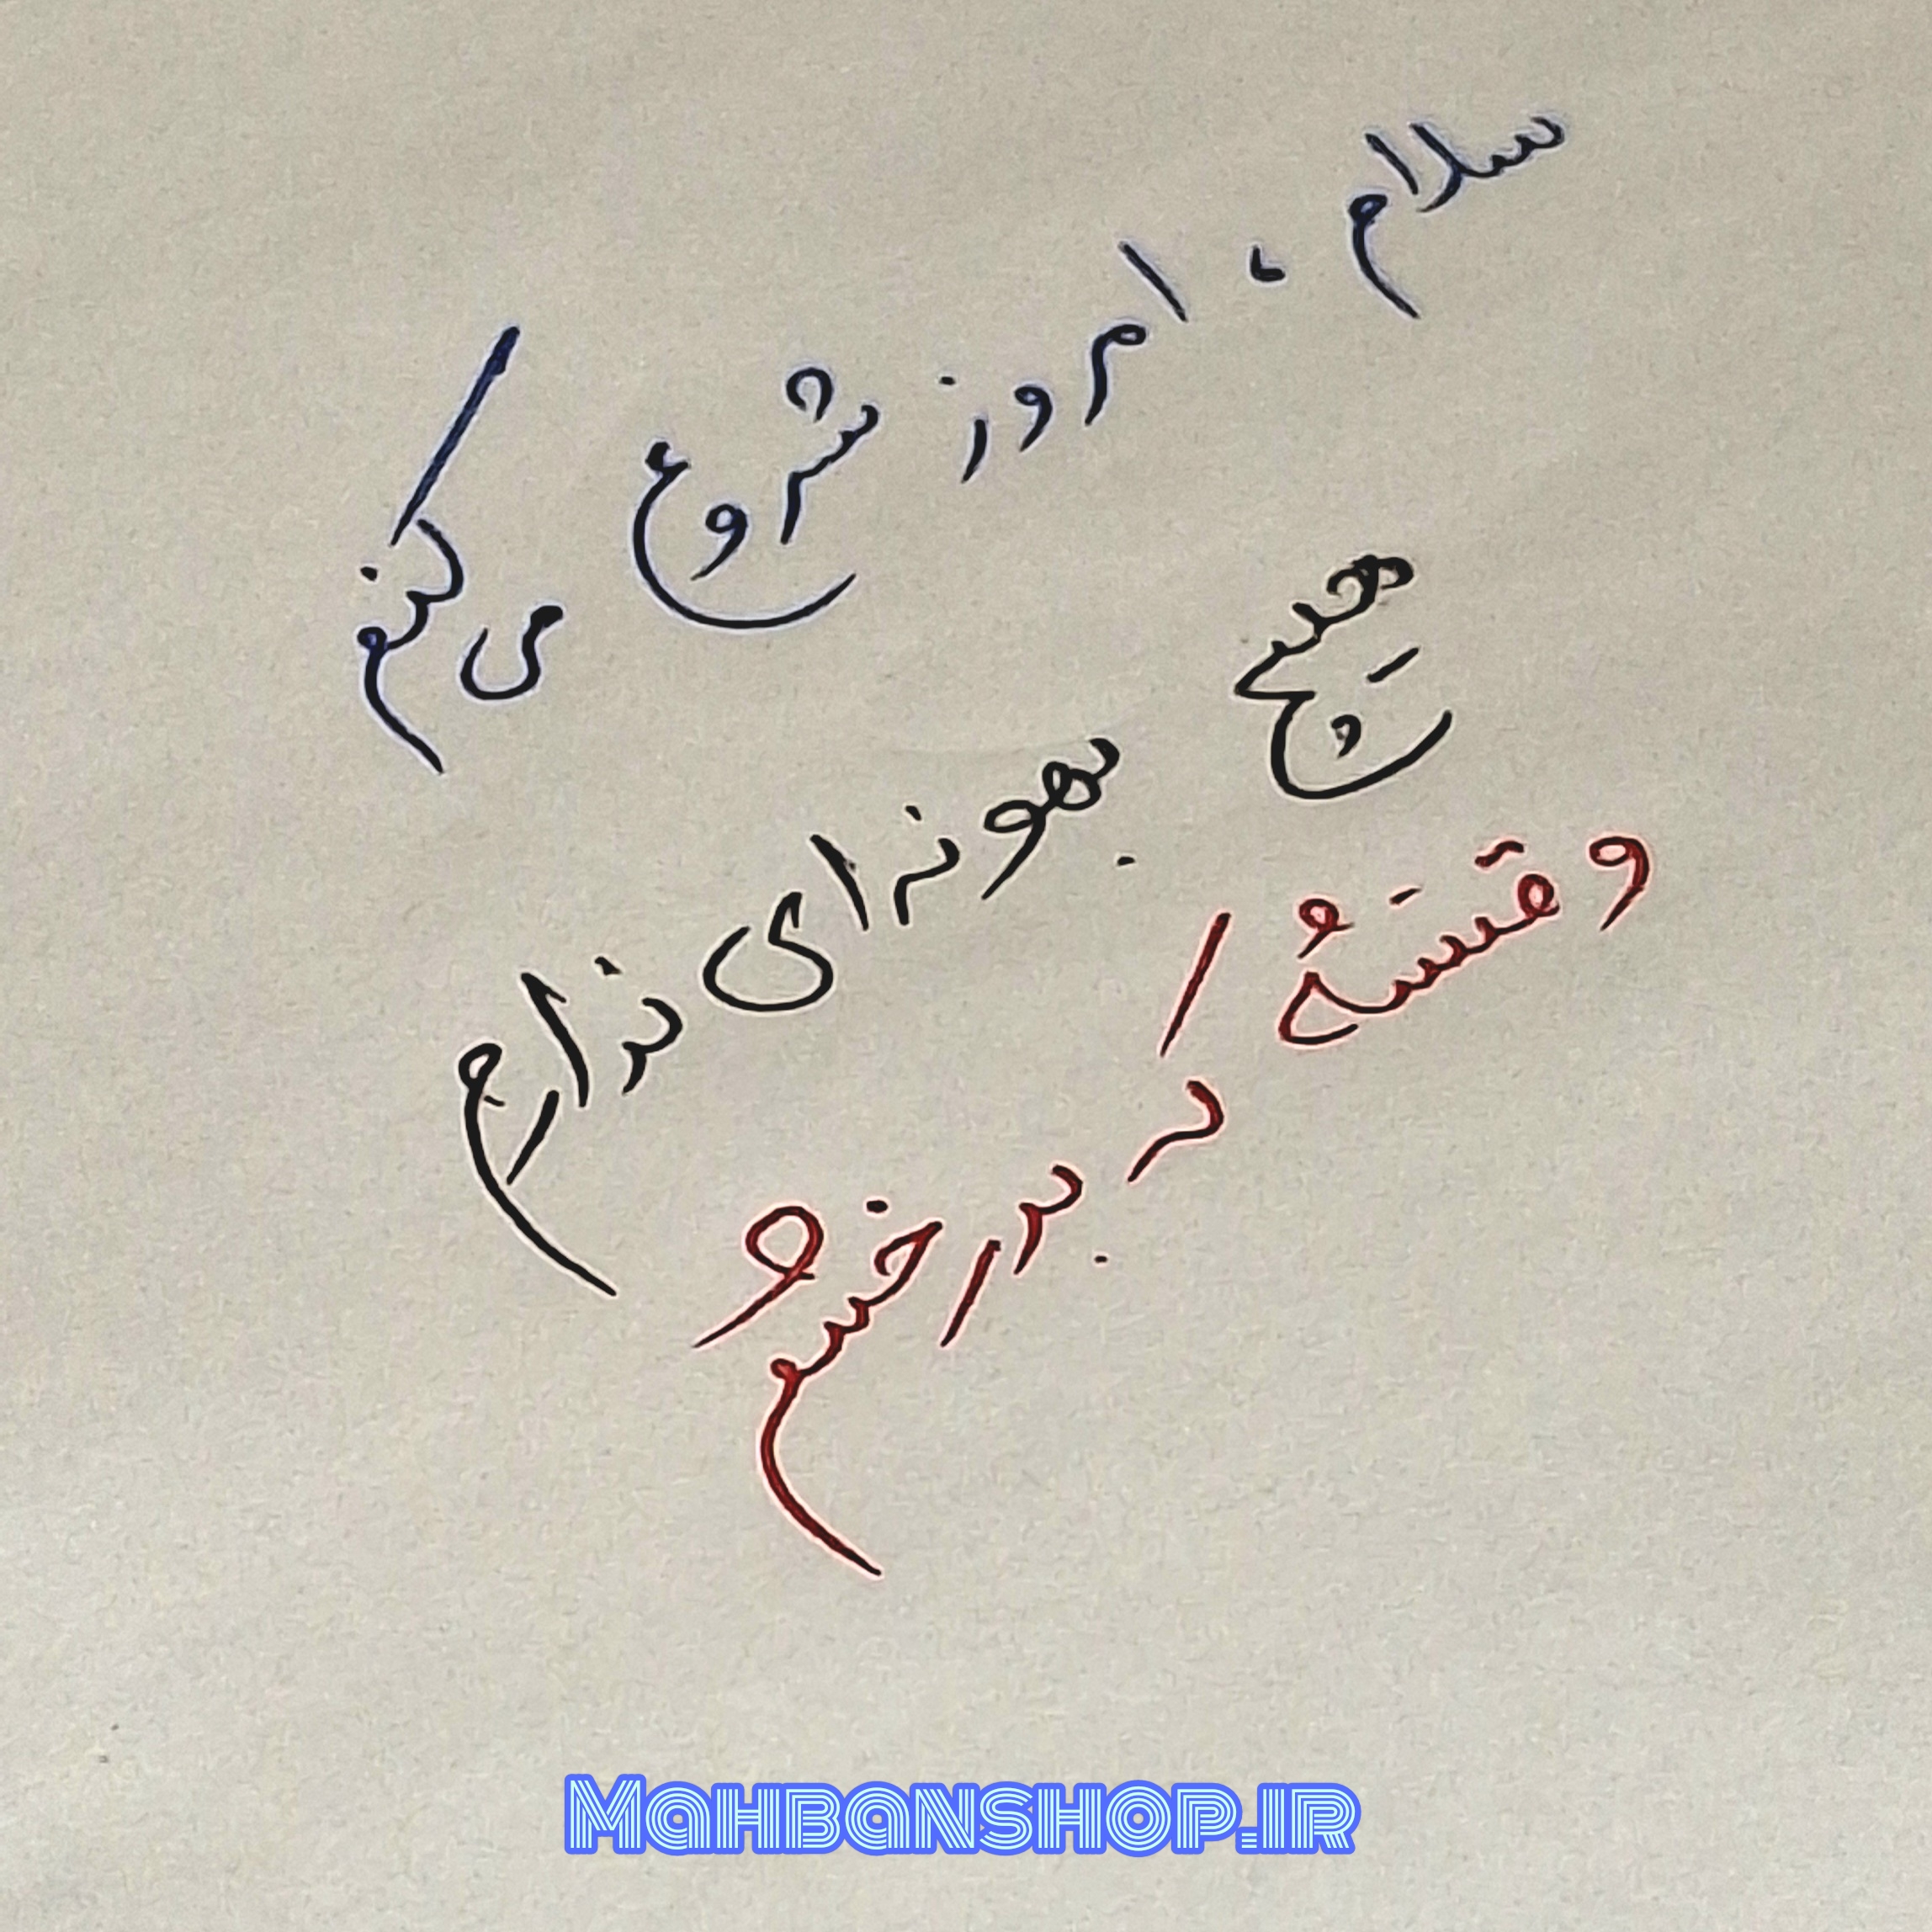 سلام، امروز شروع می‌کنم
هیچ بهونه‌ای ندارم
وقتشه که بدرخشم
MAHBANSHOP.IR